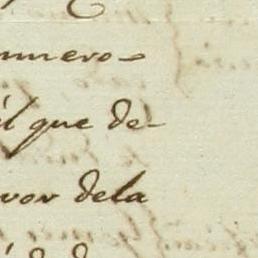 numero
él que de-
vor dela